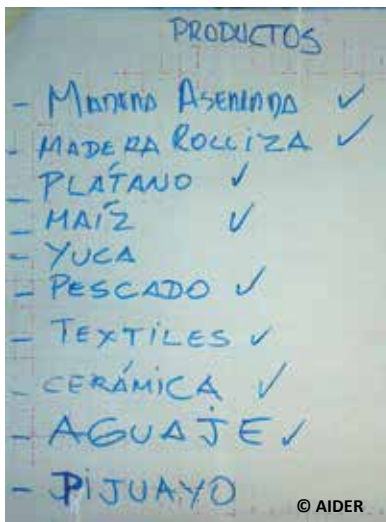 PRODUCTOS
- MADERA ASERRADA ✓
- MADERA ROLLIZA ✓
- PLÁTANO ✓
- MAÍZ ✓
- YUCA
- PESCADO ✓
- TEXTILES ✓
- CERÁMICA ✓
- AGUAJE ✓
- PIJUAYO
© AIDER